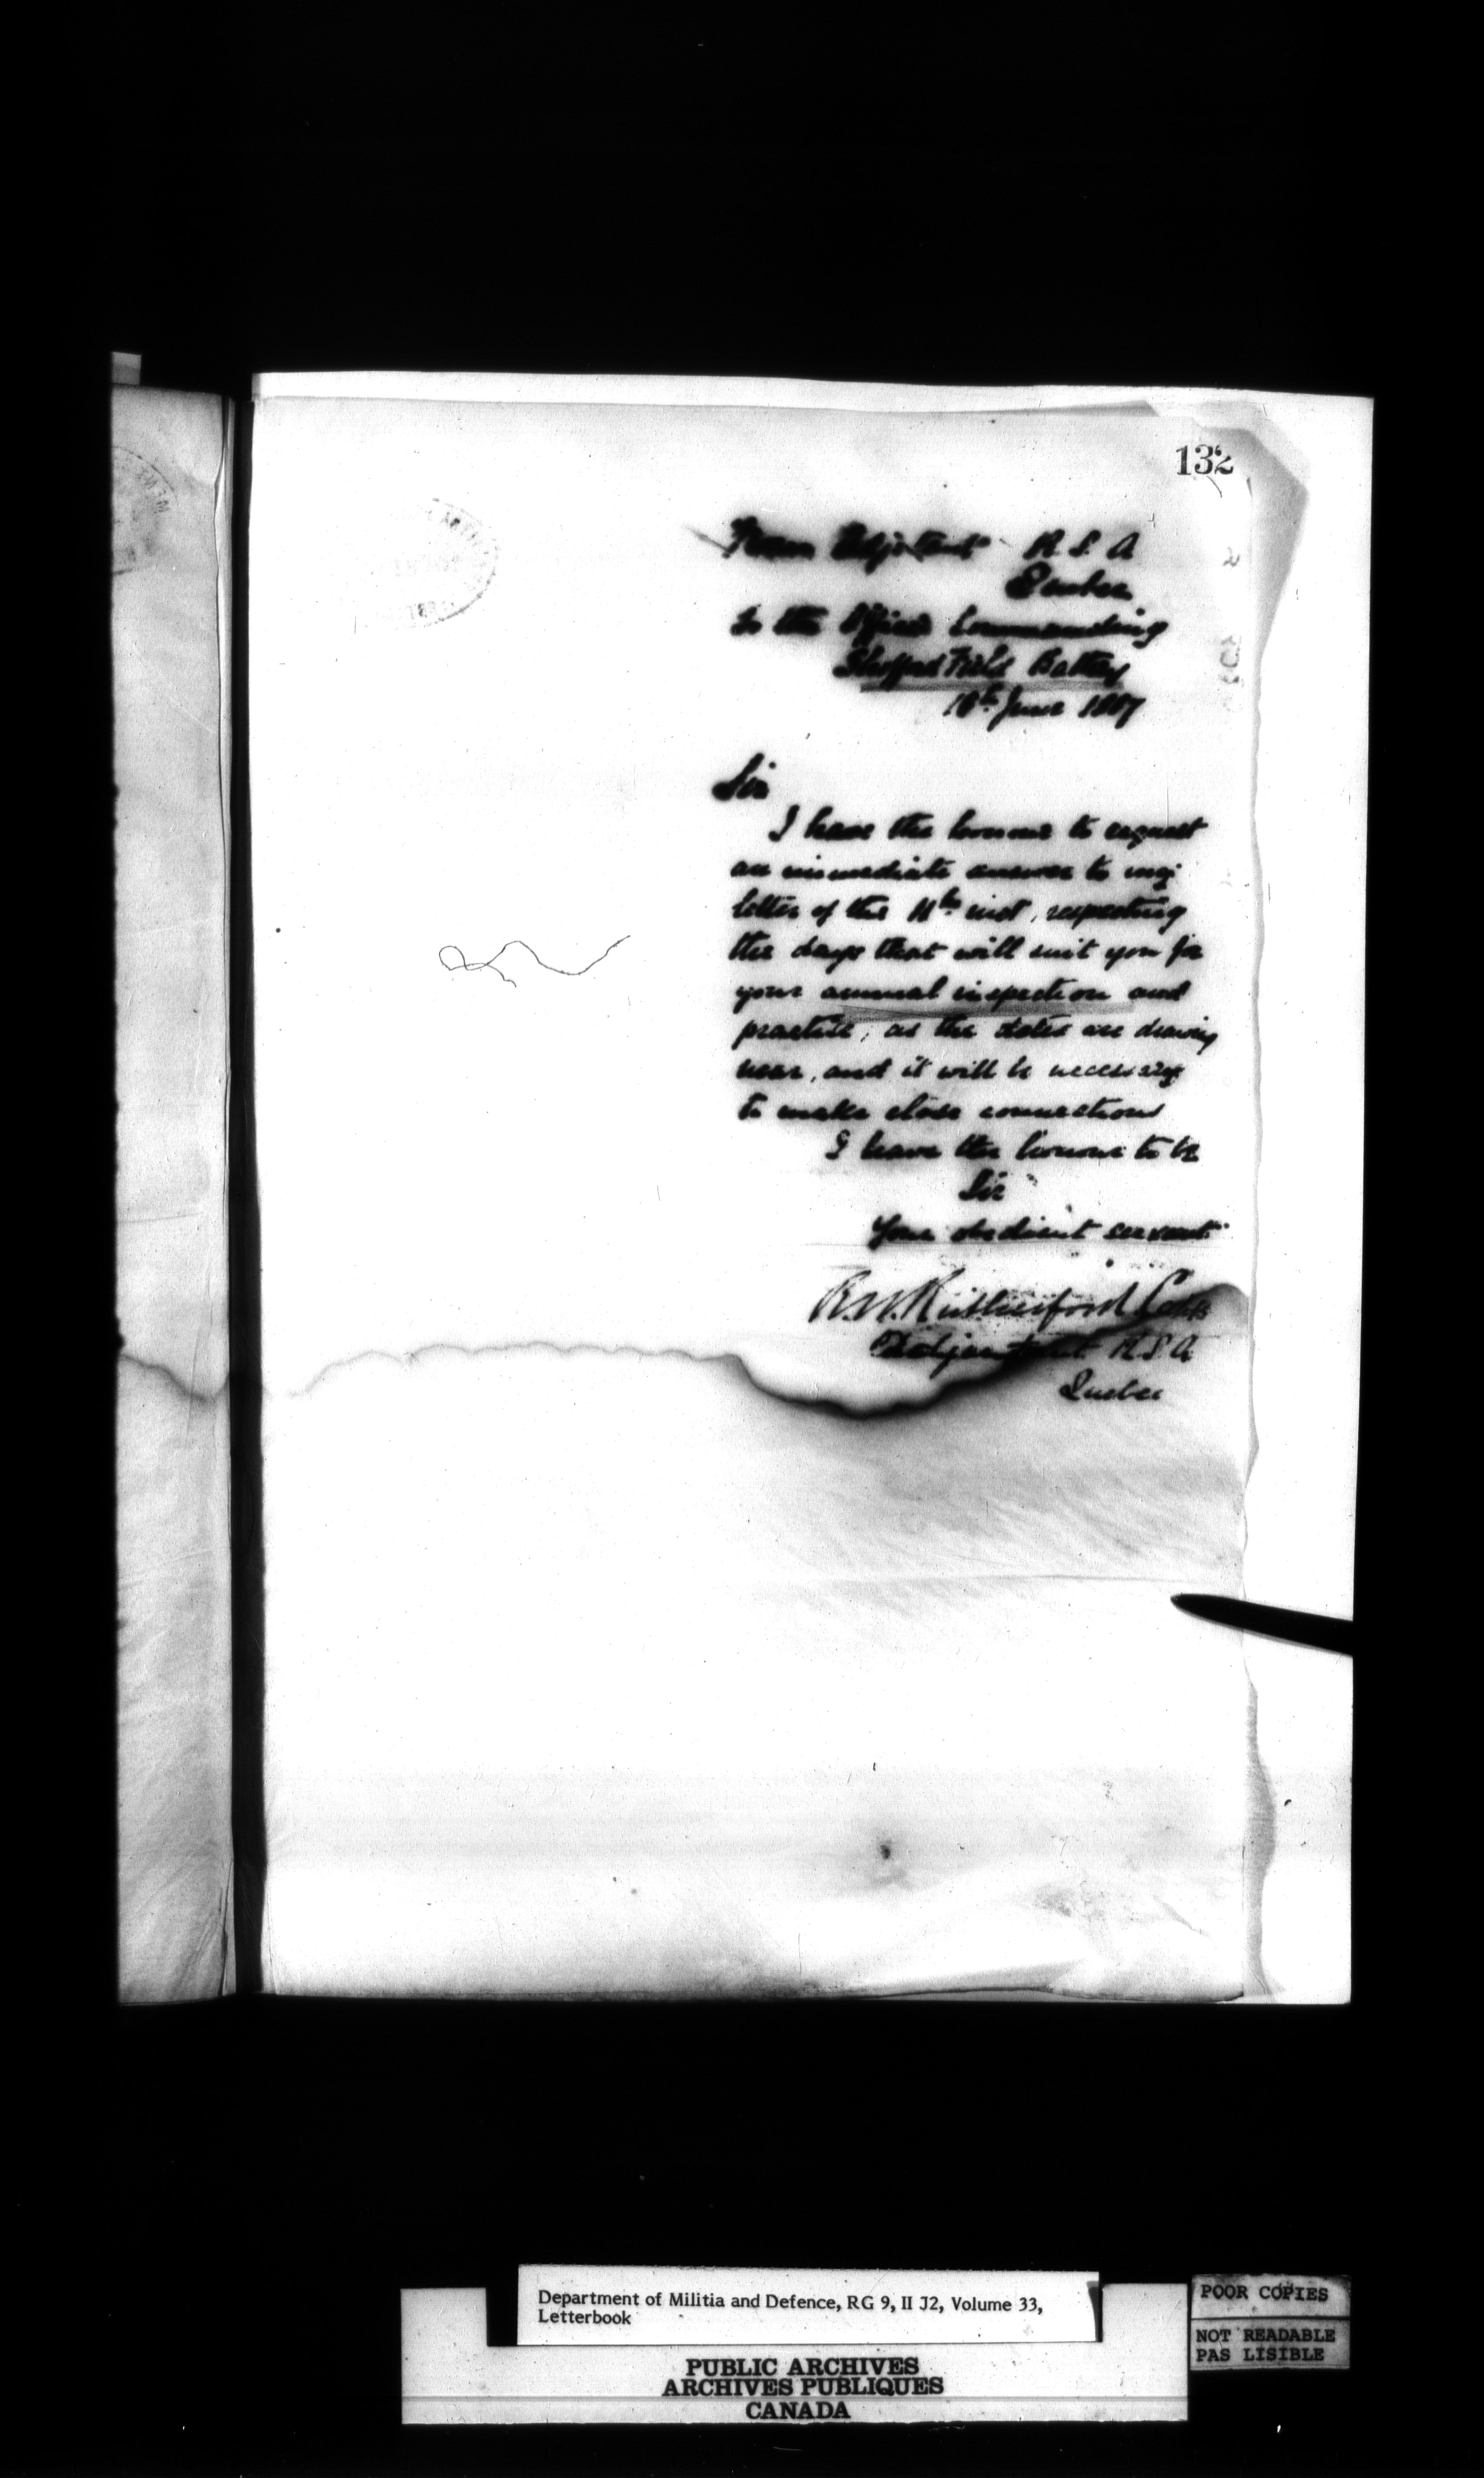 132
From Adjutant R.S.A
Quebec
To the Officer Commanding
Shefford Field Battery
June 1887
Sir
I have the honour to request
an immediate answer to my
letter of the 11th inst, respecting
the days that will suit you for
your annual inspection and
practice, as the dates are drawing
near, and it will be necessary
to make close connections
I have the honour to be
Sir
Your obedient servant
R.W. Rutherford Capt
Adjutant R.S.A
Quebec
Department of Militia and Defence, RG 9, II J2, Volume 33,
Letterbook
PUBLIC ARCHIVES
ARCHIVES PUBLIQUES
CANADA
POOR COPIES
NOT READABLE
PAS LISIBLE